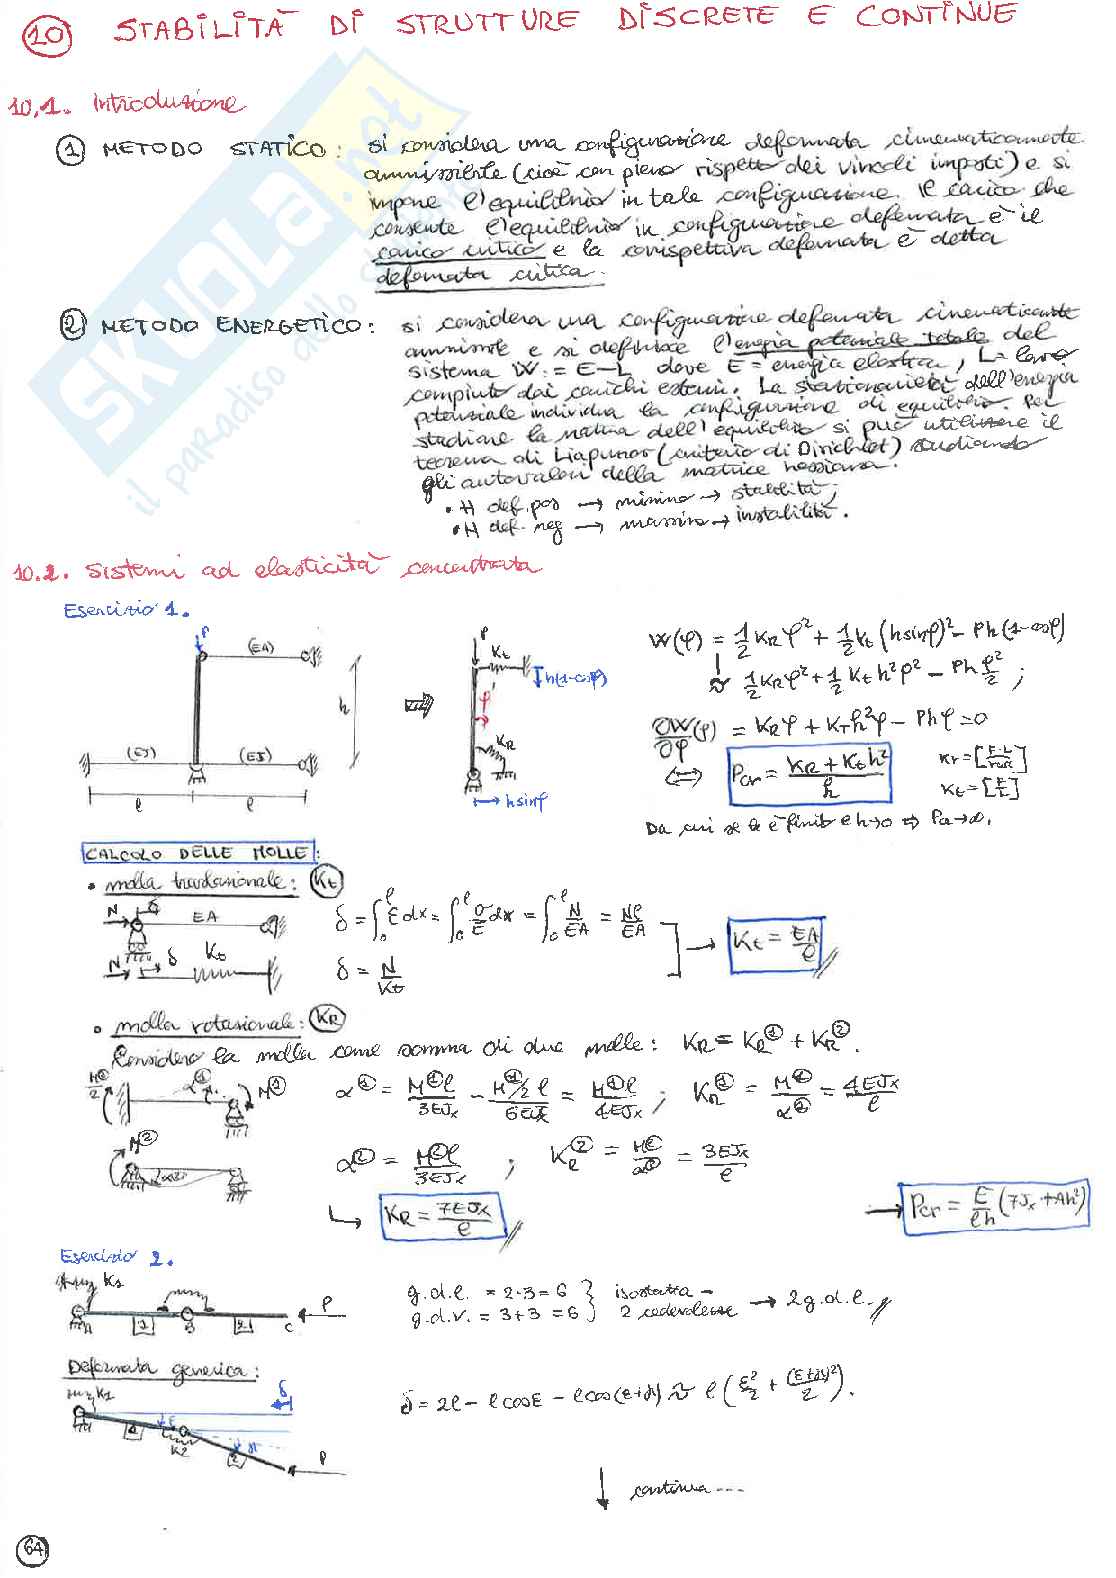 10 STABILITÀ DI STRUTTURE DISCRETE E CONTINUE
10.1. Introduzione
1 METODO STATICO: si considera una configurazione deformata cinematicamente
ammissibile (cioè con pieno rispetto dei vincoli imposti) e si
impone l'equilibrio in tale configurazione. Il carico che
consente l'equilibrio in configurazione deformata è il
carico critico e la corrispettiva deformata è detta
deformata critica.
2 METODO ENERGETICO: si considera una configurazione deformata cinematicamente
ammissibile e si definisce l'energia potenziale totale del
sistema W := E-L dove E = energia elastica, L = lavoro
compiuto dai carichi esterni. La stazionarietà dell'energia
potenziale individua la configurazione di equilibrio. Per
studiare la natura dell'equilibrio si può utilizzare il
teorema di Liapunov (criterio di Dirichlet) studiando
gli autovalori della matrice hessiana.
• H def. pos → minimo → stabilità;
• H def. neg → massimo → instabilità.
10.2. Sistemi ad elasticità concentrata
Esercizio 1.
P (EA) h (EJ) (EJ) l l
P Kt h(1-cosφ) φ KR h sinφ
W(φ) = 1/2 KR φ² + 1/2 Kt (h sinφ)² - Ph(1-cosφ)
≈ 1/2 KR φ² + 1/2 Kt h² φ² - Ph φ²/2 ;
∂W/∂φ (φ) = KR φ + KT h² φ - Phφ = 0
⇔ Pcr = (KR + Kt h²)/h
Kr = [F·L/rad]
Kt = [F/L]
Da cui se è finito e h→0 ⇒ Pcr→∞.
CALCOLO DELLE MOLLE:
• molla traslazionale: Kt
N δ EA
δ = ∫₀ˡ ε dx = ∫₀ˡ σ/E dx = ∫₀ˡ N/EA = Nl/EA
N δ Kt
δ = N/Kt
→ Kt = EA/l
• molla rotazionale: KR
Considero la molla come somma di due molle: KR = KR① + KR②.
α① = M①l/3EJx - M①/2 l/6EJx = M①l/4EJx ; KR① = M①/α① = 4EJx/l
α② = M②l/3EJx ; KR② = M②/α② = 3EJx/l
KR = 7EJx/l
→ Pcr = E/lh (7Jx + Ah²)
Esercizio 2.
K1 A 1 B 2 C P
g.d.l. = 2·3 = 6
g.d.v. = 3+3 = 6
isostatica -
2 cedevolezze → 2 g.d.l.
Deformata generica:
K1 δ 1 ε K2 2 P
δ = 2l - l cosε - l cos(ε+γ) ≈ l (ε²/2 + (ε+γ)²/2).
↓ continua ...
64
SKUOLA.net
il paradiso dello